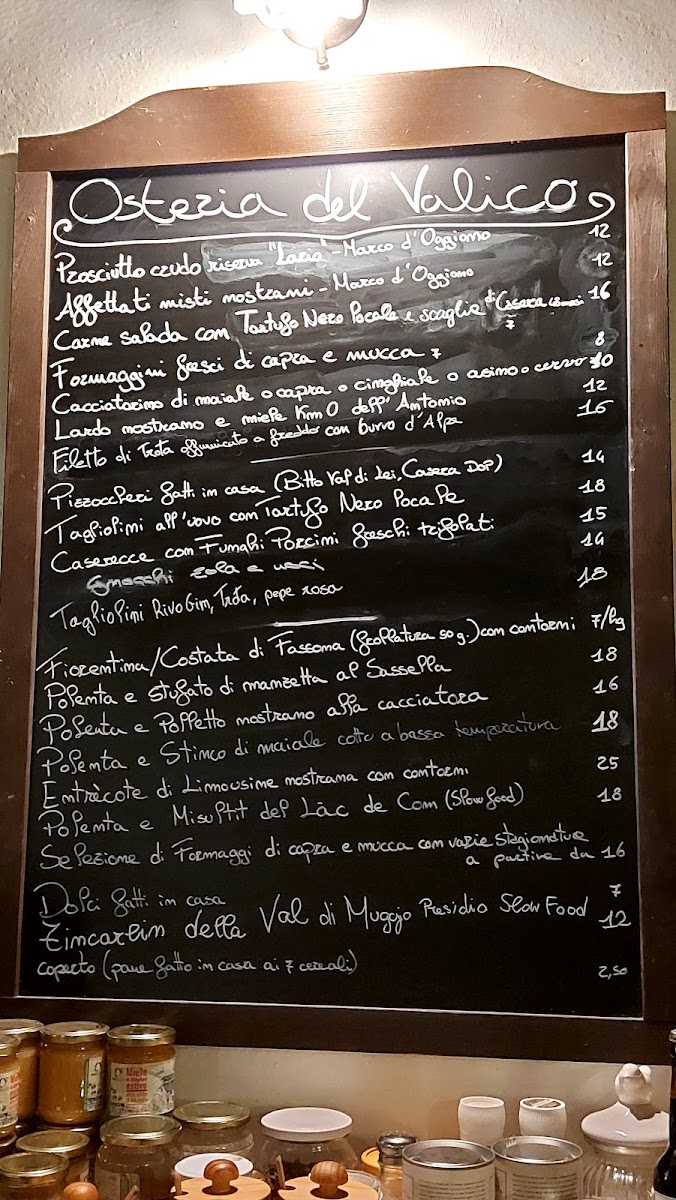 Osteria del Valico
Prosciutto crudo riserva "Lario" - Marco d'Oggiono 12
Affettati misti nostrani - Marco d'Oggiono 12
Carne salada con Tartufo Nero Locale e scaglie di Casera 16
Formaggini freschi di capra e mucca 7
Cacciatorino di maiale o capra o cinghiale o asino o cervo 8
Lardo nostrano e miele Km 0 dell'Antonio 12
Filetto di Trota affumicato a freddo con burro d'Alpe 16
Pizzoccheri fatti in casa (Bitto Val di Lei, Casera DOP) 14
Tagliolini all'uovo con Tartufo Nero Locale 18
Caserecce con Funghi Porcini freschi trifolati 15
Gnocchi zola e noci 14
Tagliolini Rivo Gin, Trota, pepe rosa 18
Fiorentina/Costata di Fassona (frollatura 50 g.) con contorni 7/hg
Polenta e stufato di manzetta al Sassella 18
Polenta e Polletto nostrano alla cacciatora 16
Polenta e Stinco di maiale cotto a bassa temperatura 18
Entrècote di Limousine nostrana con contorni 25
Polenta e Misultit del Lâc de Com (Slow food) 18
Selezione di Formaggi di capra e mucca con varie stagionature
a partire da 16
Dolci fatti in casa 7
Zincarlin della Val di Muggio Presidio Slow Food 12
coperto (pane fatto in casa ai 7 cereali) 2,50
Miele